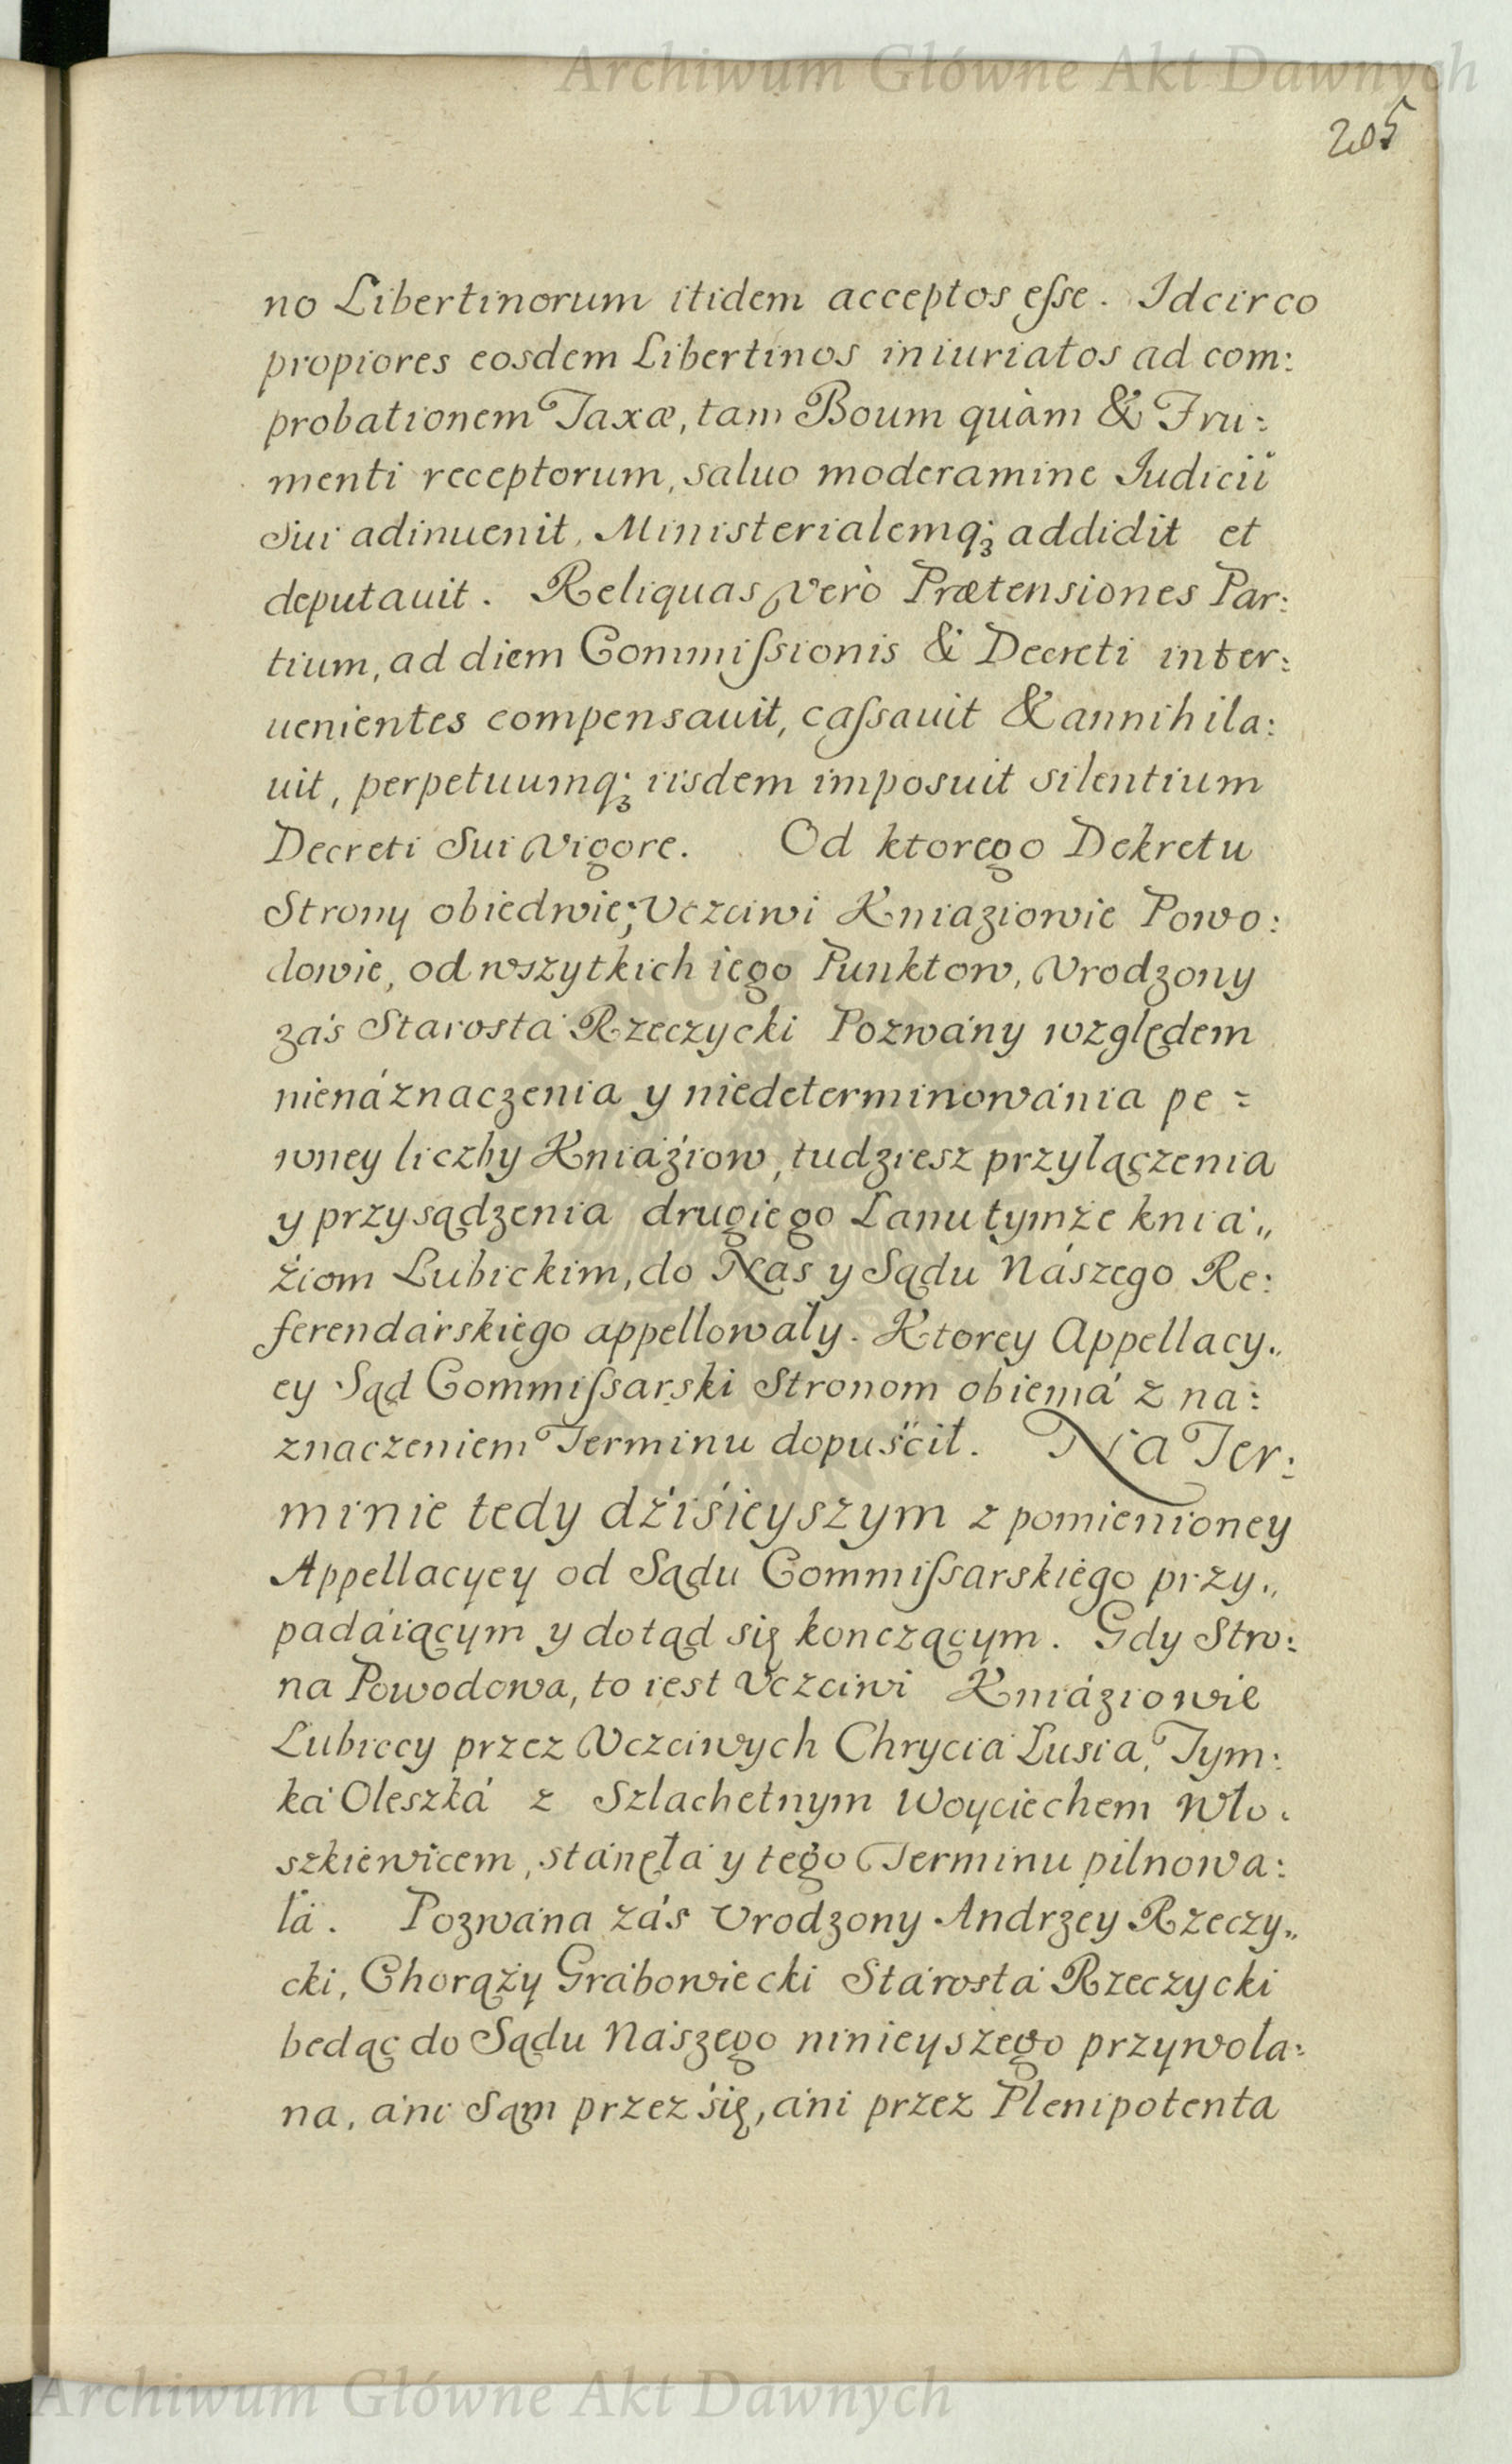 Archiwum Główne Akt Dawnych
205
no Libertinorum itidem acceptos eſse. Idcirco
propiores eosdem Libertinos iniuriatos ad com:
probationem Taxæ, tam Boum quàm & Fru:
menti receptorum, saluo moderamine Iudicii
Sui adinuenit, Ministerialemq; addidit et
deputauit. Reliquas verò Prætensiones Par:
tium, ad diem Commiſsionis & Decreti inter:
uenientes compensauit, caſsauit & annihila:
uit, perpetuumq; iisdem imposuit silentium
Decreti Sui vigore. Od ktorego Dekretu
Strony obiedwie; Vczciwi Kniaziowie Powo:
dowie, od wszytkich iego Punktow, Vrodzony
záś Starosta Rzeczycki Pozwány względem
nienáznaczenia y niedeterminowánia pe:
wney liczby Kniáźiow, tudziesz przyłączenia
y przysądzenia drugiego Lanu tymże kniá„
źiom Lubickim, do Nas y Sądu Nászego Re:
ferendárskiego appellowáły. Ktorey Appellacy„
ey Sąd Commiſsarski Stronom obiemá z na:
znaczeniem Terminu dopuśćił. Na Ter:
minie tedy dźiśieyszym z pomienioney
Appellacyey od Sądu Commiſsarskiego przy„
padáiącym y dotąd się konczącym. Gdy Stro:
na Powodowa, to iest Vczciwi Kniáziowie
Lubiccy przez Vczciwych Chryciá Lusia, Tym:
ká Oleszká z Szlachetnym Woyciechem Wło:
szkiewicem, stánęłá y tego Terminu pilnowa:
łá. Pozwána záś Vrodzony Andrzey Rzeczy„
cki, Chorąży Grábowiecki Stárosta Rzeczycki
bedąc do Sądu Nászego ninieyszego przywoła:
na, áni Sąm przez śię, áni przez Plenipotenta
Archiwum Główne Akt Dawnych